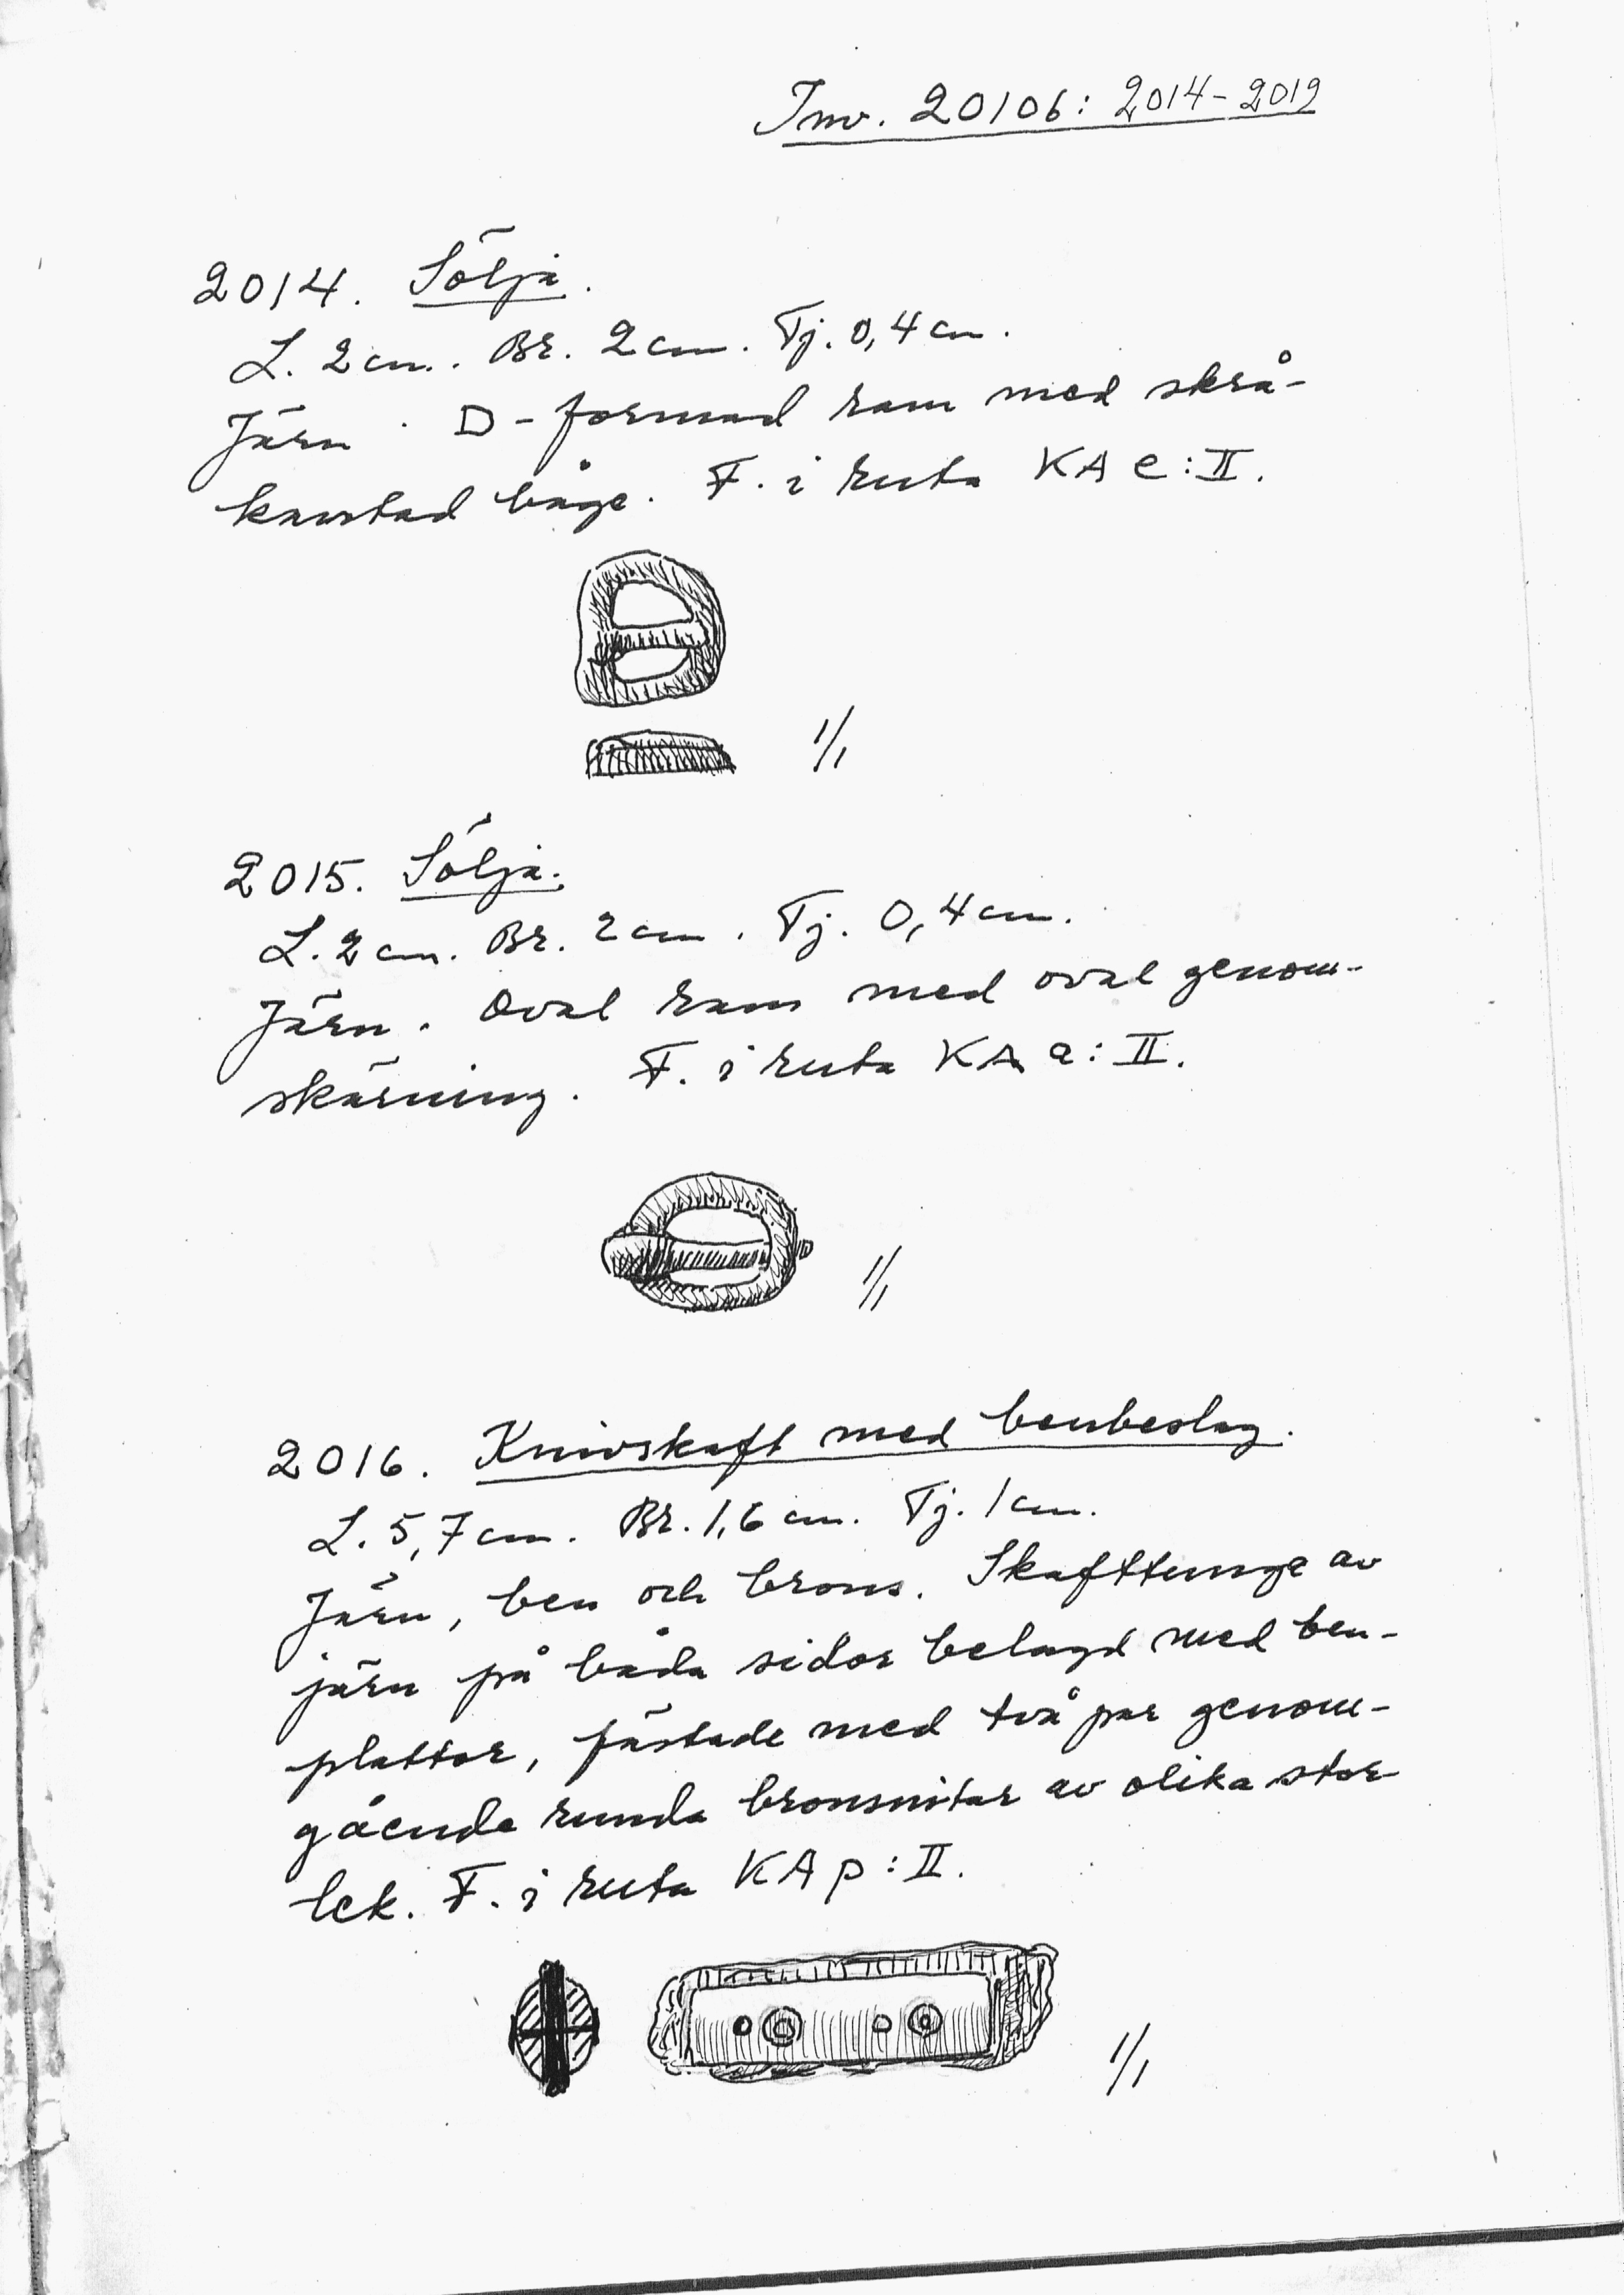 Inv. 20106: 2014-2019
2014. Sölja.
L. 2 cm. Br. 2 cm. Tj. 0,4 cm.
Järn. D-formad ram med skrå-
kantad båge. F. i ruta KA e:II.
1/1
2015. Sölja.
L. 2 cm. Br. 2 cm. Tj. 0,4 cm.
Järn. Oval ram med oval genom-
skärning. F. i ruta KA a:II.
1/1
2016. Knivskaft med benbeslag.
L. 5,7 cm. Br. 1,6 cm. Tj. 1 cm.
Järn, ben och brons. Skafttunge av
järn på båda sidor belagd med ben-
plattor, fästade med två par genom-
gående runda bronsnitar av olika stor-
lek. F. i ruta KA p:II.
1/1